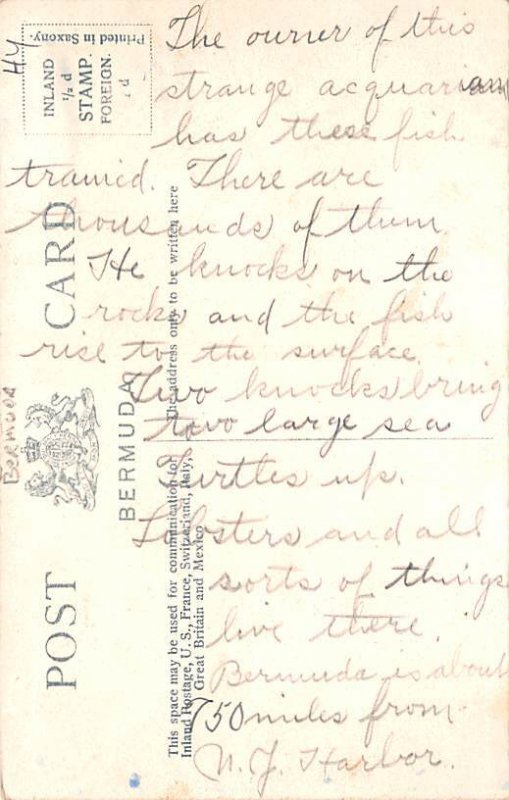 The owner of this
strange acquarium
has these fish
trained. There are
thousands of them
He knocks on the
rocks and the fish
rise to the surface.
Two knocks bring
two large sea
Turtles up.
Lobsters and all
sorts of things
live there.
Bermuda is about
750 miles from
N.J. Harbor.
Bermuda
POST CARD
BERMUDA
This space may be used for communication for
Inland Postage, U.S., France, Switzerland, Italy,
Great Britain and Mexico
The address only to be written here
Printed in Saxony.
INLAND
½ d
STAMP.
FOREIGN.
d